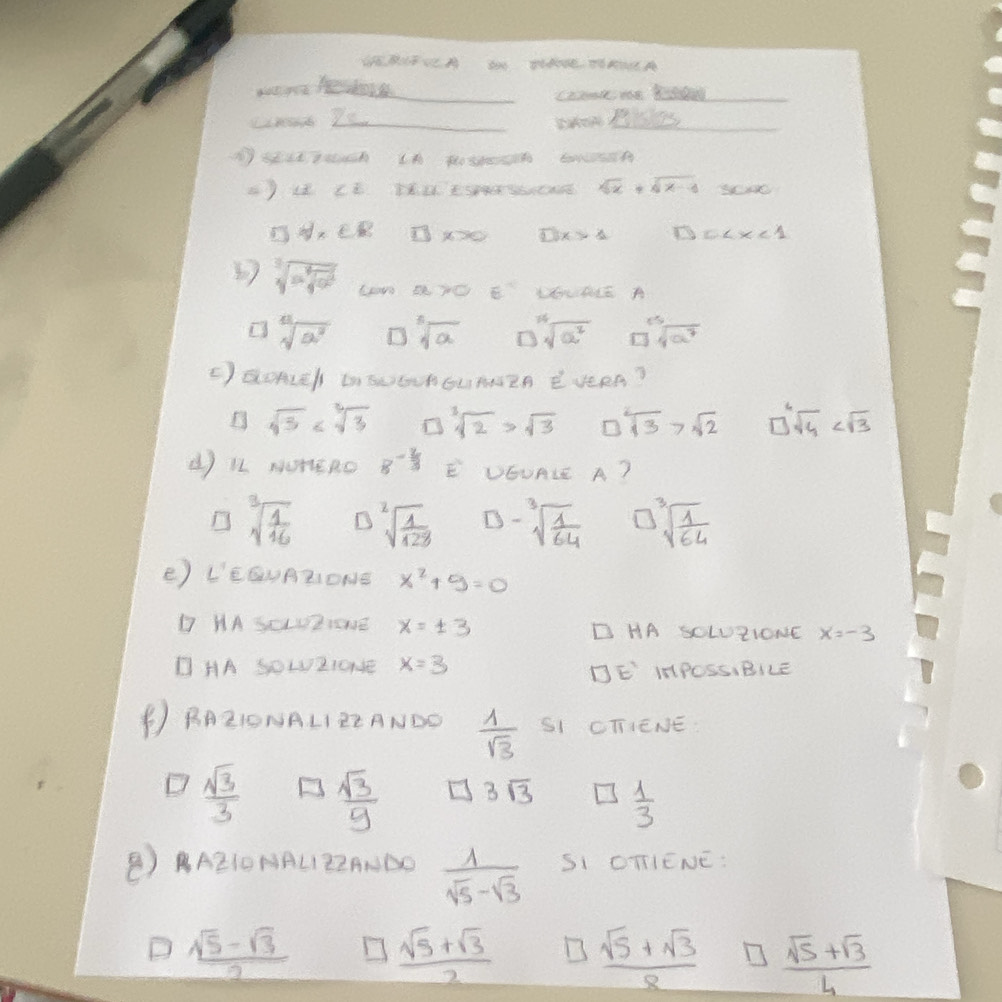 VERIFICA DI MATEMATICA
NOME COGNOME
CLASSE 2 DATA
1) SELEZIONA LA RISPOSTA GIUSTA
a) LE CE DELL'ESPRESSIONE √x + √x-1 SONO
□ ∀x ∈ R □ x>0 □ x>1 □ 0<x<1
b) CON a>0 E' UGUALE A
□ ⁵√a
c) QUALE DISUGUAGLIANZA È VERA?
□ √3 < ³√3 □ ³√2 > √3 □ ⁶√3 > √2 □ ⁶√4 < √3
d) IL NUMERO E' UGUALE A?
□ ³√1/16 □ ²√1/128 □ -³√1/64 □ ³√1/64
e) L'EQUAZIONE x²+9=0
□ HA SOLUZIONE x=±3 □ HA SOLUZIONE x=-3
□ HA SOLUZIONE x=3 □ E' IMPOSSIBILE
f) RAZIONALIZZANDO 1/√3 SI OTTIENE:
□ √3/3 □ √3/9 □ 3√3 □ 1/3
g) RAZIONALIZZANDO 1/√5-√3 SI OTTIENE:
□ √5-√3/2 □ √5+√3/2 □ √5+√3/8 □ √5+√3/4